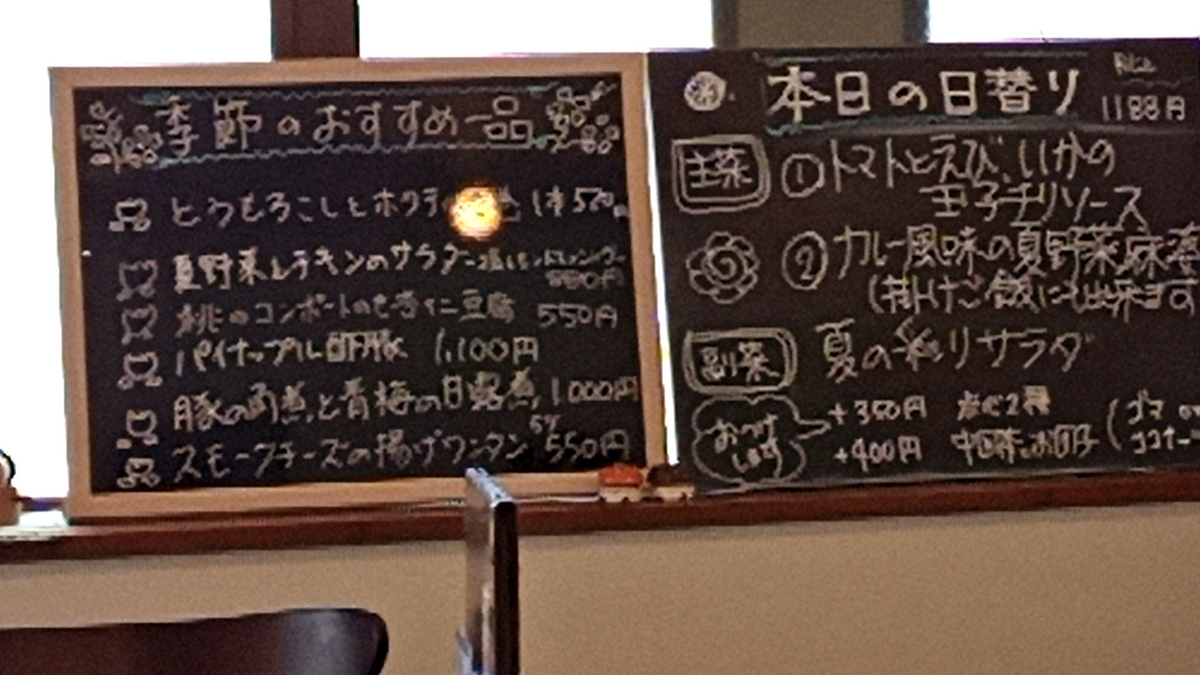 季節のおすすめ一品
とうもろこしとホタテ 1本 520
夏野菜とチキンのサラダ 880円
桃のコンポートのせ杏仁豆腐 550円
パイナップル酢豚 1,100円
豚の角煮と青梅の甘露煮 1,000円
スモークチーズの揚げワンタン 5ケ 550円
本日の日替り 1188円
主菜 ① トマトとえび、いかの
玉子チリソース
② カレー風味の夏野菜麻婆
(掛けご飯にも出来ます
副菜 夏の彩りサラダ
おつけします +350円 点心2種
+400円 (ゴマ
ココナ